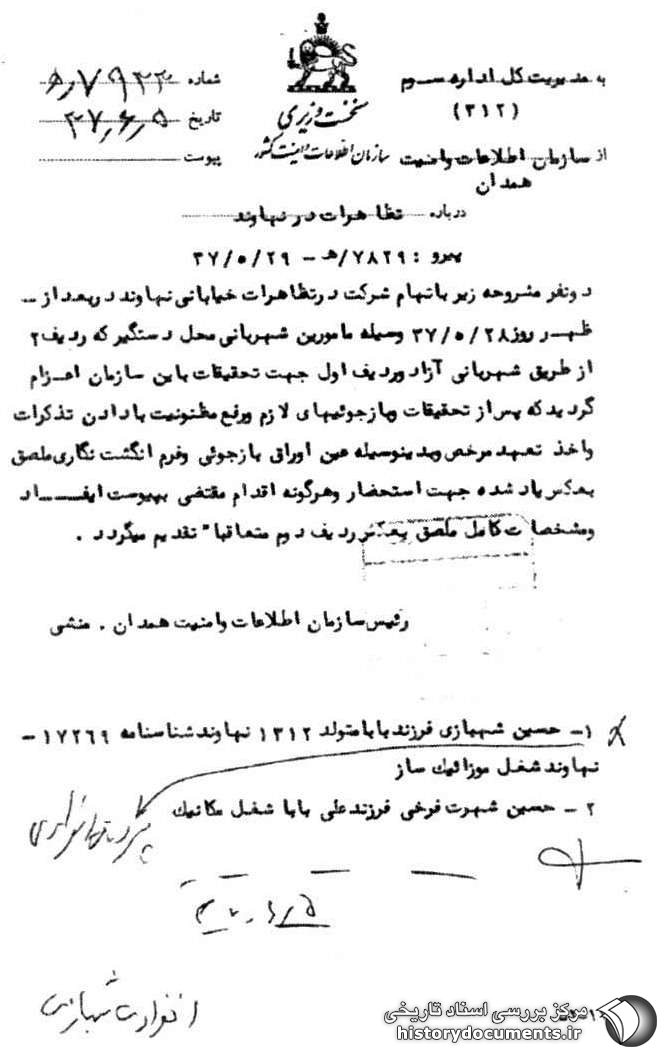 به مدیریت کل اداره سوم
(۳۱۲)
از سازمان اطلاعات وامنیت
همدان
نخست وزیری
سازمان اطلاعات و امنیت کشور
شماره
تاریخ ۳۷٫۶٫۵
پیوست
درباره تظاهرات در نهاوند
پیرو : ۷۸۲۹/هـ - ۳۷/۵/۲۹
دونفر مشروحه زیر باتهام شرکت درتظاهرات خیابانی نهاوند دربعداز ــ
ظهر روز ۳۷/۵/۲۸ وسیله مامورین شهربانی محل دستگیر که ردیف۲
از طریق شهربانی آزاد وردیف اول جهت تحقیقات باین سازمان اعزام
گردیدکه پس از تحقیقات وبازجوئیهای لازم ورفع مظنونیت بادادن تذکرات
واخذ تعهد مرخص وبدینوسیله عین اوراق بازجوئی وفرم انگشت نگاری ملصق
بعکس یاد شده جهت استحضار وهرگونه اقدام مقتضی بپیوست ایفاد
ومشخصات کامل ملصق بعکس ردیف دوم متعاقبا" تقدیم میگردد .
رئیس سازمان اطلاعات وامنیت همدان . منشی
۱- حسین شهبازی فرزند بابا متولد ۱۳۱۲ نهاوند شناسنامه ۱۷۲۶۹ -
نهاوند شغل موزائیك ساز
۲ - حسین شهرت فرخی فرزند علی بابا شغل مکانیك
مرکز بررسی اسناد تاریخی
historydocuments.ir